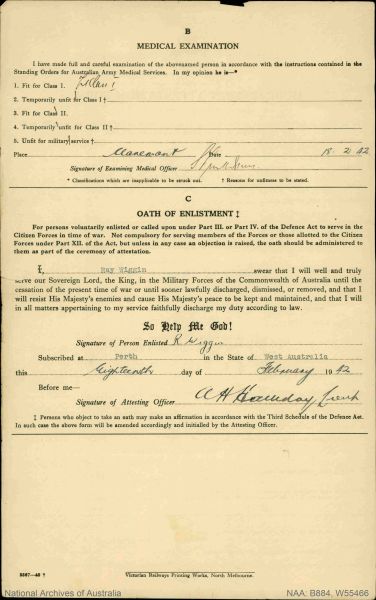 B
MEDICAL EXAMINATION
I have made full and careful examination of the abovenamed person in accordance with the instructions contained in
Standing Orders for Australian Army Medical Services. In my opinion he is—*
1. Fit for Class I.
2. Temporarily unfit for Class I †
3. Fit for Class II.
4. Temporarily unfit for Class II †
5. Unfit for military service †
Place Claremont Date 18. 2. 42
Signature of Examining Medical Officer
* Classifications which are inapplicable to be struck out. † Reasons for unfitness to be stated.
C
OATH OF ENLISTMENT ‡
For persons voluntarily enlisted or called upon under Part III. or Part IV. of the Defence Act to serve in the
Citizen Forces in time of war. Not compulsory for serving members of the Forces or those allotted to the Citizen
Forces under Part XII. of the Act, but unless in any case an objection is raised, the oath should be administered to
them as part of the ceremony of attestation.
I, Ray Wiggin swear that I will well and truly
serve our Sovereign Lord, the King, in the Military Forces of the Commonwealth of Australia until the
cessation of the present time of war or until sooner lawfully discharged, dismissed, or removed, and that I
will resist His Majesty's enemies and cause His Majesty's peace to be kept and maintained, and that I will
in all matters appertaining to my service faithfully discharge my duty according to law.
So Help Me God!
Signature of Person Enlisted R Wiggin
Subscribed at Perth in the State of West Australia
this Eighteenth day of February 1942
Before me—
Signature of Attesting Officer A H Lieut
‡ Persons who object to take an oath may make an affirmation in accordance with the Third Schedule of the Defence Act.
In such case the above form will be amended accordingly and initialled by the Attesting Officer.
Victorian Railways Printing Works, North Melbourne.
National Archives of Australia
NAA: B884, W55466